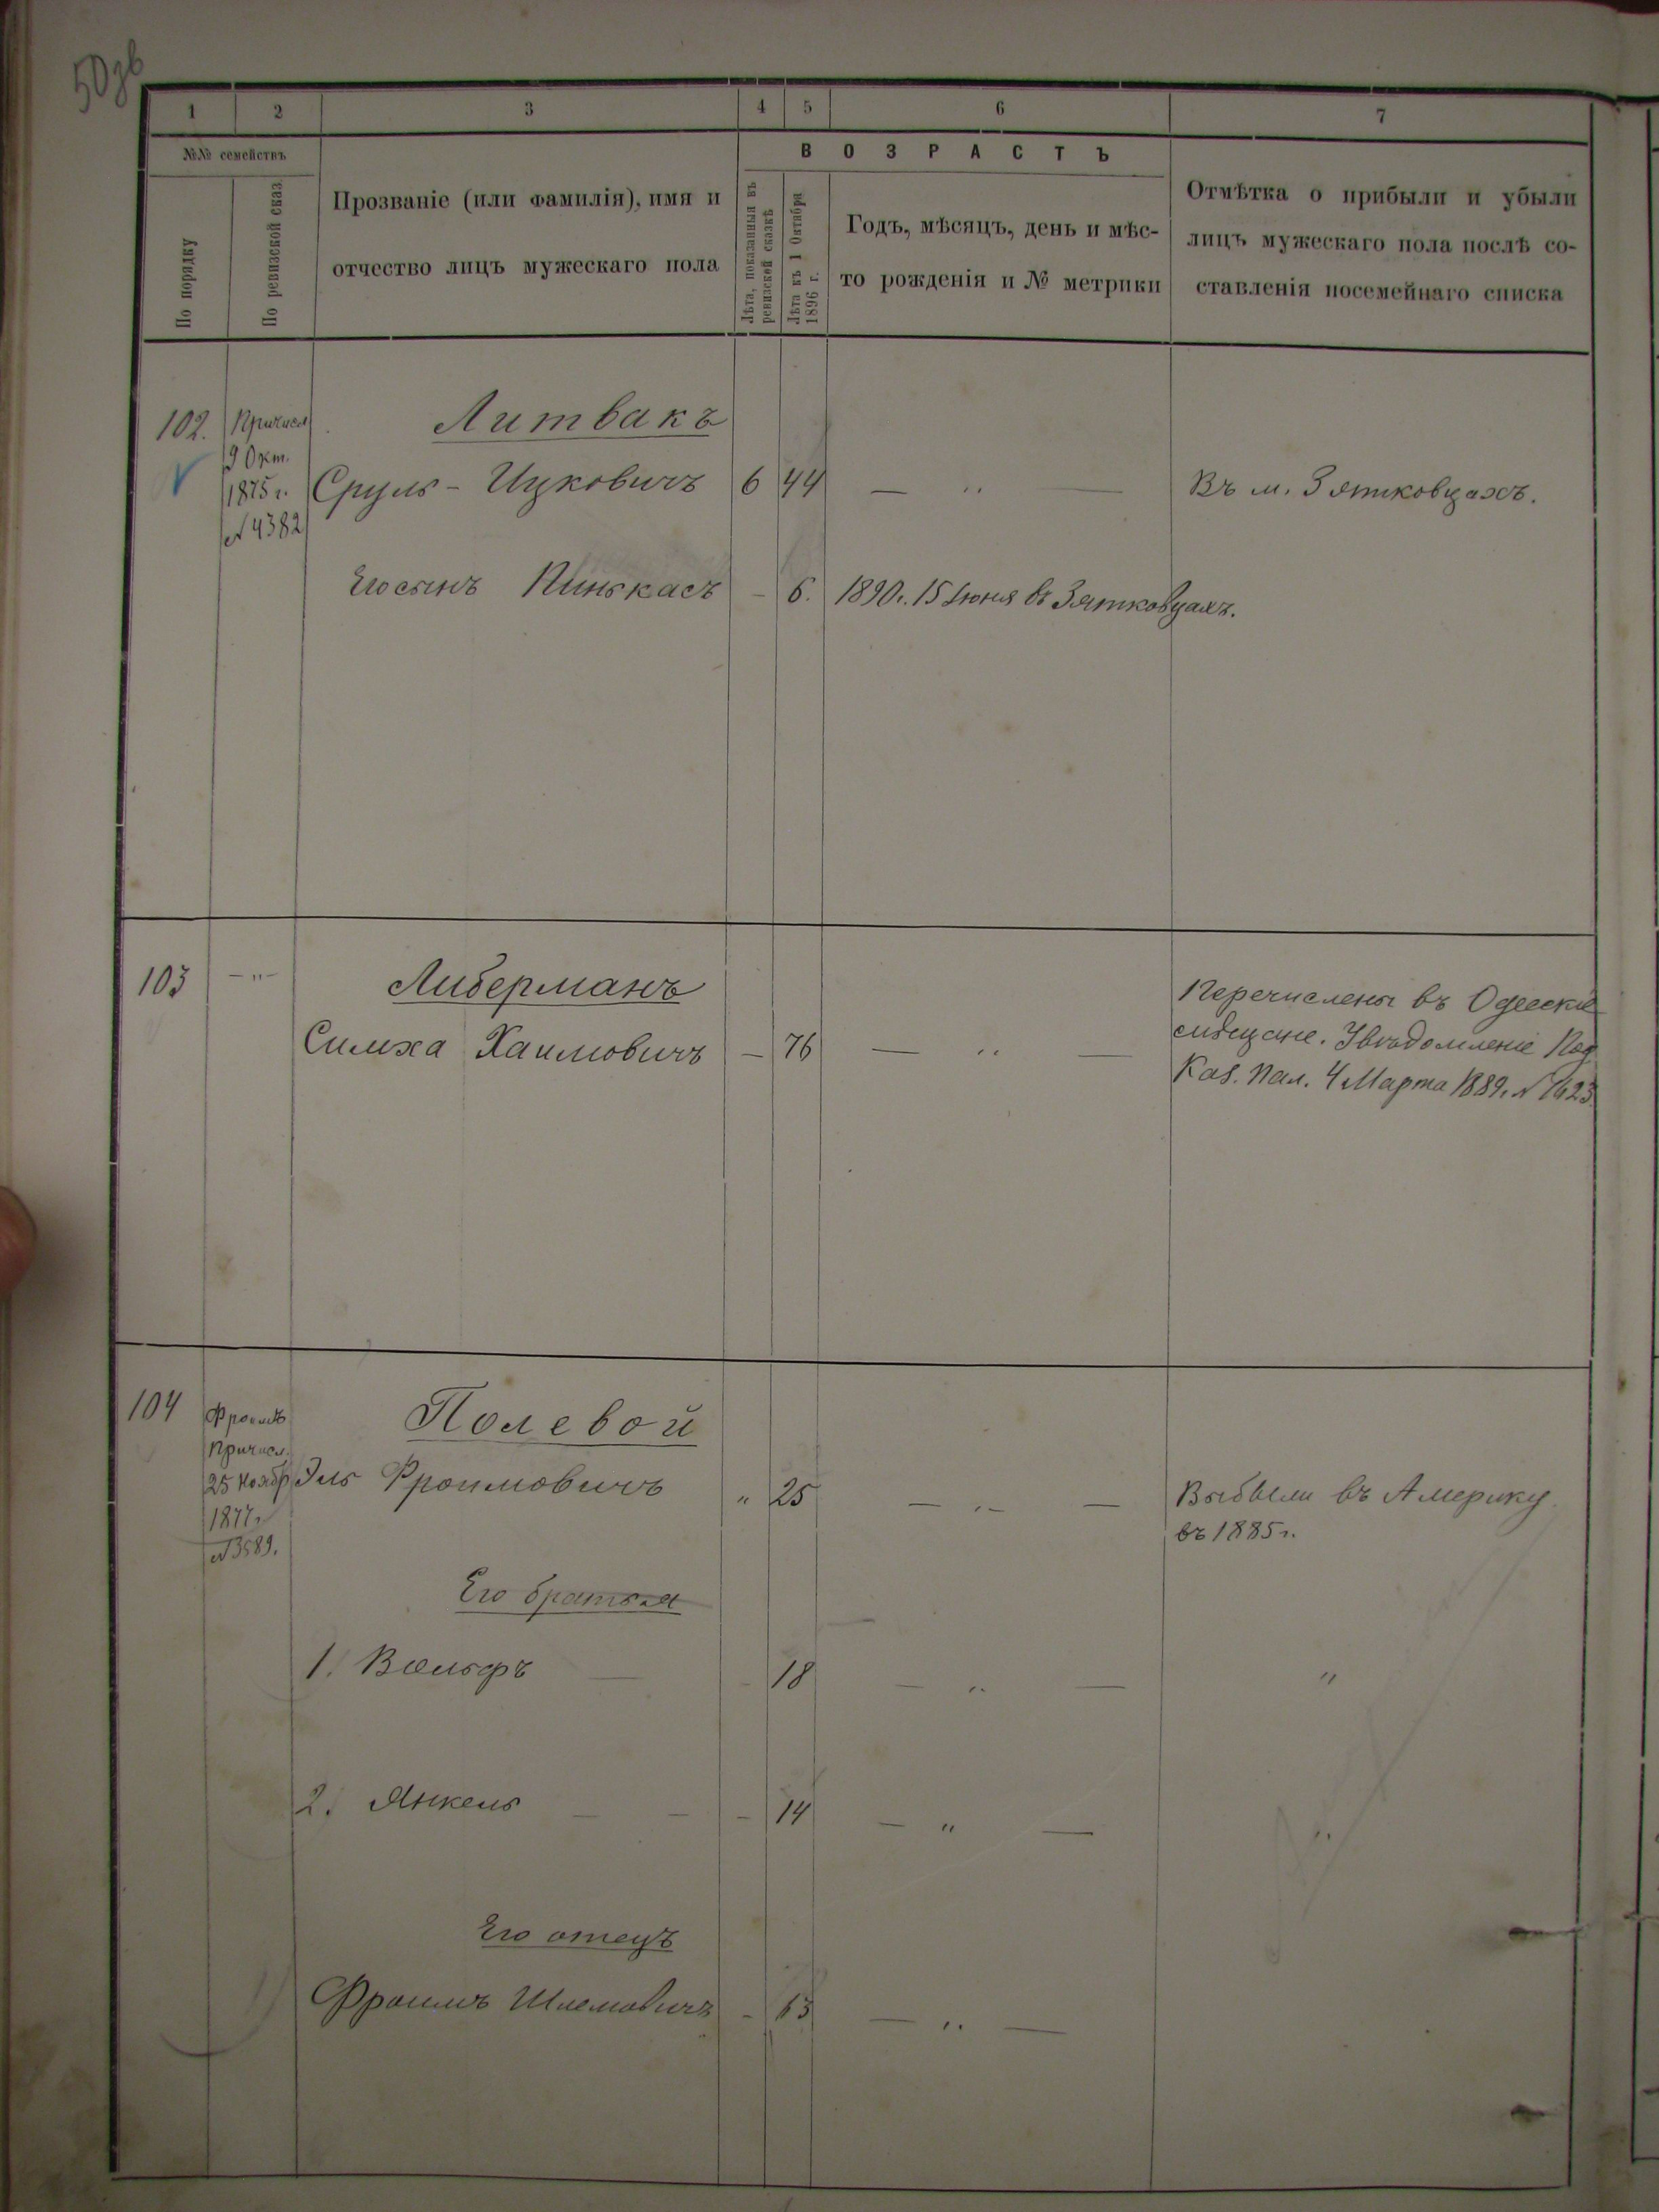 50зв
1 2 3 4 5 6 7
№№ семействъ
По порядку
По ревизской сказ.
Прозваніе (или фамилія), имя и
отчество лицъ мужескаго пола
ВОЗРАСТЪ
Лѣта, показанныя въ
ревизской сказкѣ
Лѣта къ 1 Октября
1896 г.
Годъ, мѣсяцъ, день и мѣс-
то рожденія и № метрики
Отмѣтка о прибыли и убыли
лицъ мужескаго пола послѣ со-
ставленія посемейнаго списка
102. Причисл Литвакъ
9 Окт.
1875 г. Сруль - Ицковичъ 6 44 — " — Въ м. Зятковцахъ.
№ 4382
Его сынъ Пинькасъ - 6. 1890 г. 15 Іюня въ Зятковцахъ.
103 - " - Либерманъ
Симха Хаимовичъ — 76 — " —
Перечислены въ Одесскіе
мѣщане. Увѣдомленіе Под
Каз. Пал. 4 Марта 1889, №
104 Фроимъ Полевой
Причисл.
25 Ноябр Эль Фроимовичъ " 25 — " — Выбыли въ Америку
1877 г. въ 1885 г.
№ 3589.
Его братья
1. Вольфъ — - 18 — " — "
2. Янкель — - - 14 — " — "
Его отецъ
Фроимъ Шлемовичъ - 63 — " —